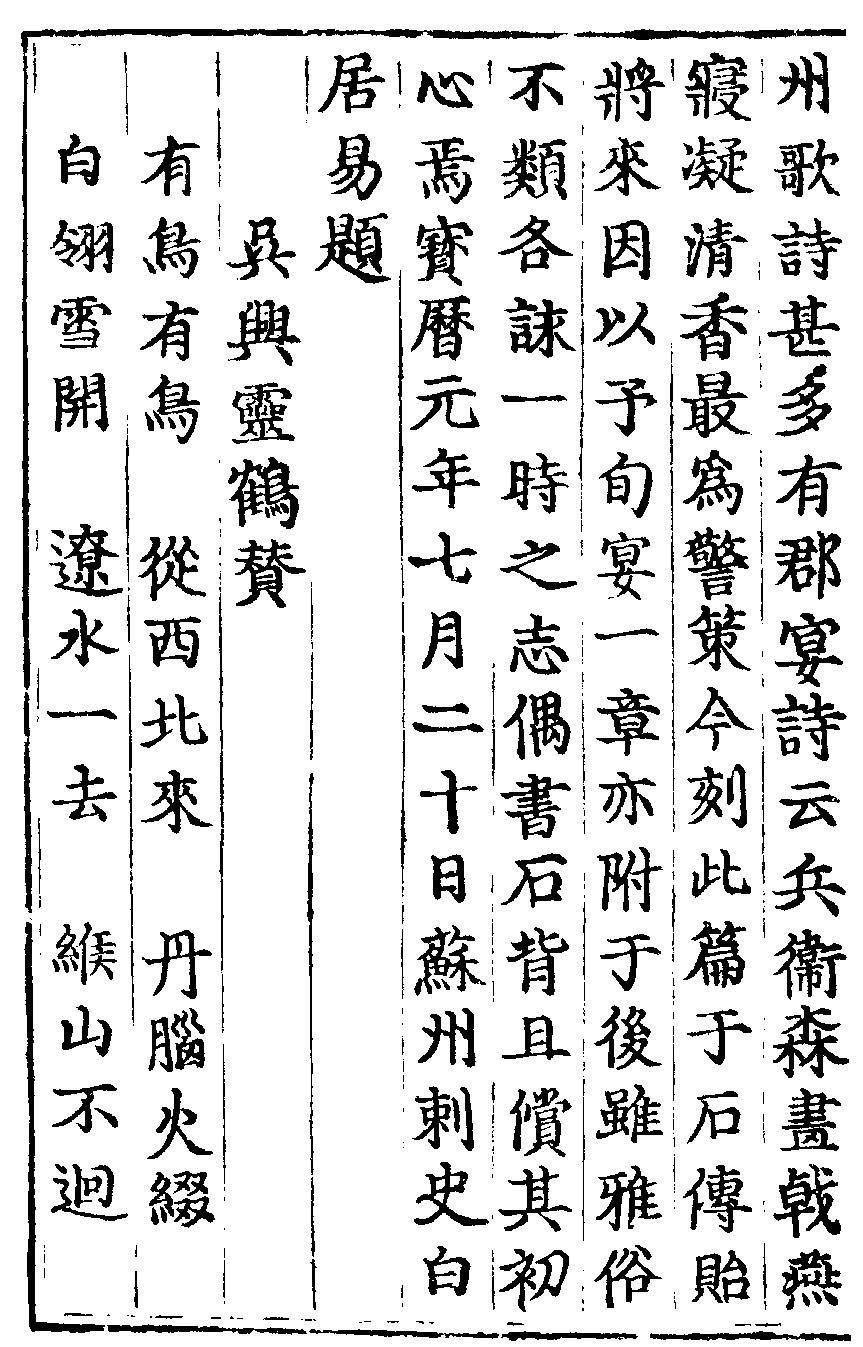 州歌詩甚多有郡宴詩云兵衞森畫戟燕
寢凝清香最爲警策今刻此篇于石傳貽
將來因以予旬宴一章亦附于後雖雅俗
不類各詠一時之志偶書石背且償其初
心焉寶曆元年七月二十日蘇州刺史白
居易題
吳興靈鶴贊
有鳥有鳥　從西北來　丹腦火綴
白翎雪開　遼水一去　緱山不迴